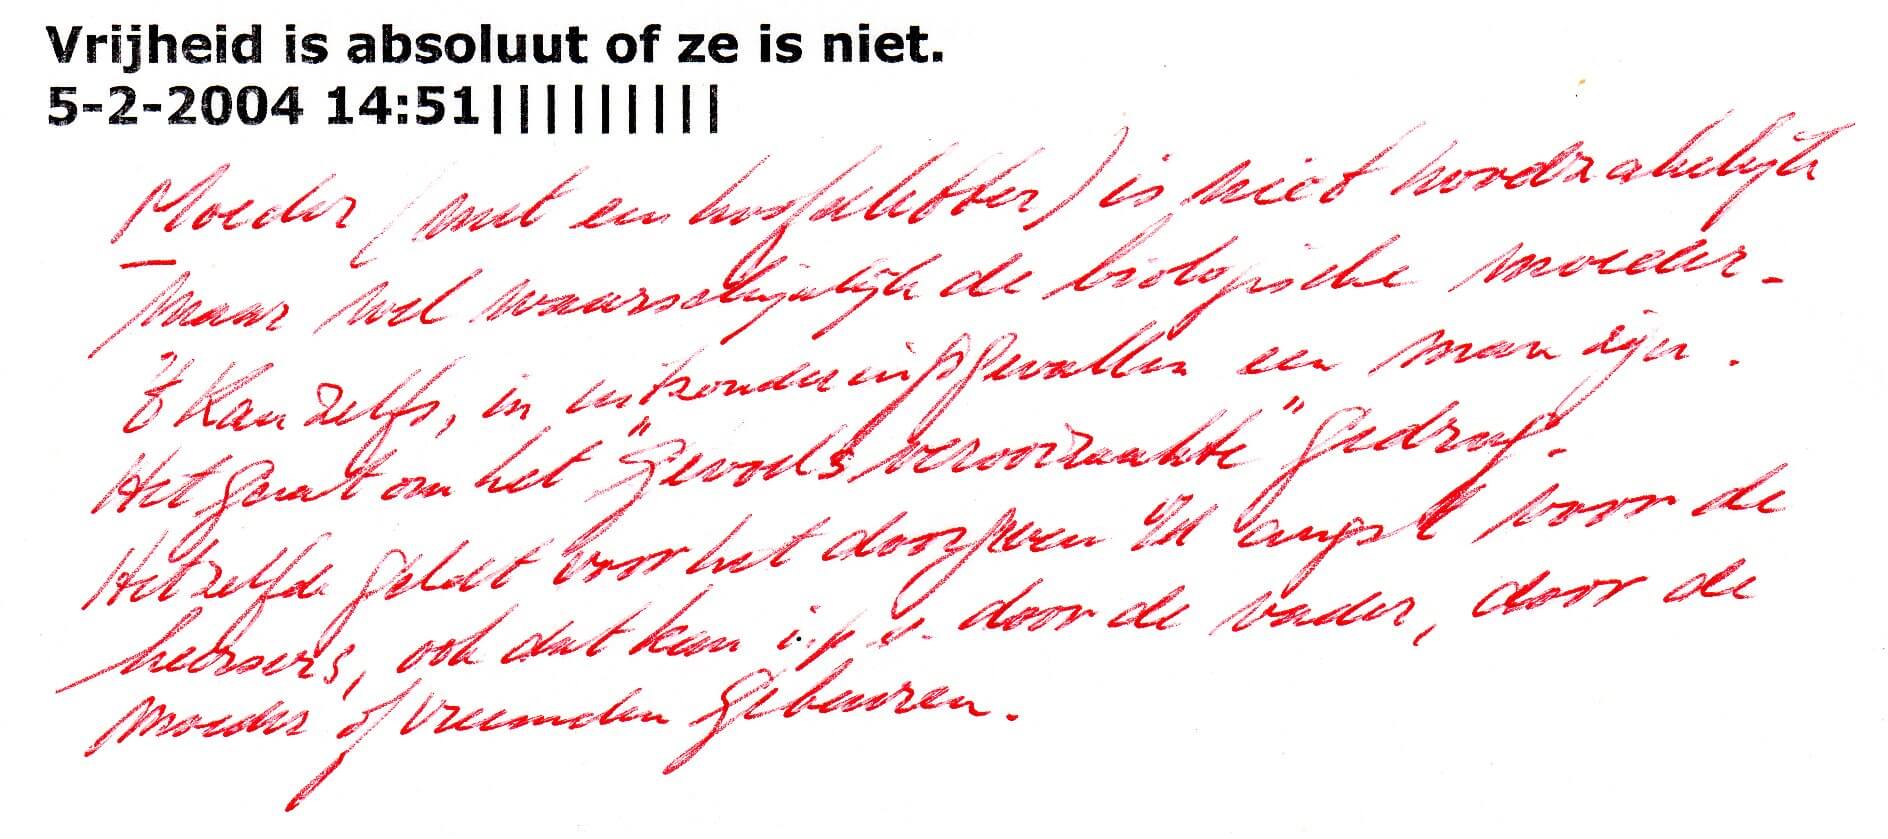 Vrijheid is absoluut of ze is niet.
5-2-2004 14:51||||||||||
Moeder (met een hoofdletter) is niet noodzakelijk
maar wel waarschijnlijk de biologische moeder.
't Kan zelfs, in uitzonderingsgevallen een man zijn.
Het gaat om het "gevoels veroorzaakte" gedrag.
Hetzelfde geldt voor het doorgeven v/d angst voor de
heersers, ook dat kan i.p.v. door de vader, door de
moeder of vreemden gebeuren.